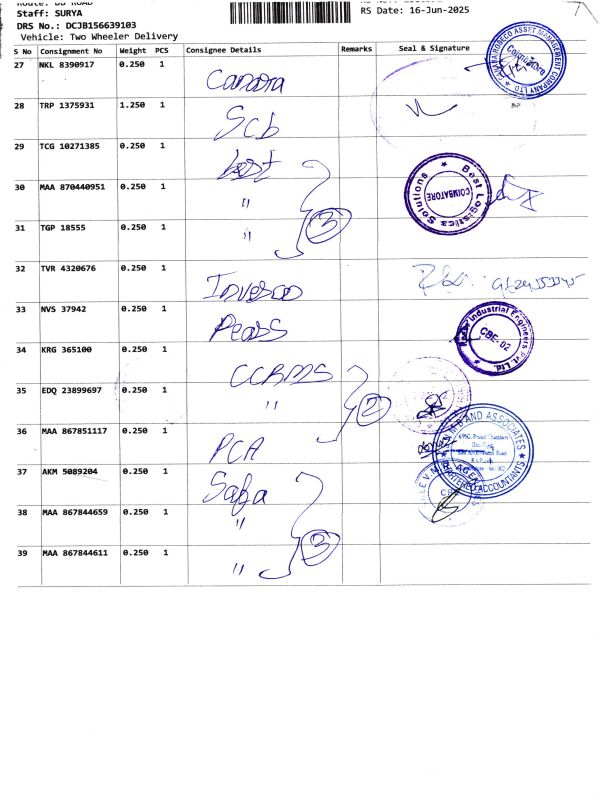 Route: DB ROAD
Staff: SURYA
RS Date: 16-Jun-2025
DRS No.: DCJB156639103
Vehicle: Two Wheeler Delivery
S No Consignment No Weight PCS Consignee Details Remarks Seal & Signature
27 NKL 8390917 0.250 1 Canara
28 TRP 1375931 1.250 1 Scb
29 TCG 10271385 0.250 1 best
30 MAA 870440951 0.250 1 "
31 TGP 18555 0.250 1 " 3
32 TVR 4320676 0.250 1 Invesco
33 NVS 37942 0.250 1 Pears
34 KRG 365100 0.250 1 CCRMS
35 EDQ 23899697 0.250 1 " 2
36 MAA 867851117 0.250 1 PCA
37 AKM 5089204 0.250 1 Safa
38 MAA 867844659 0.250 1 "
39 MAA 867844611 0.250 1 " 3
ASSET MANAGEMENT COMPANY LTD
Coimbatore
Best Logistics Solutions
COIMBATORE
Industrial Engineers Pvt. Ltd.
CBE-02
AND ASSOCIATES
CHARTERED ACCOUNTANTS